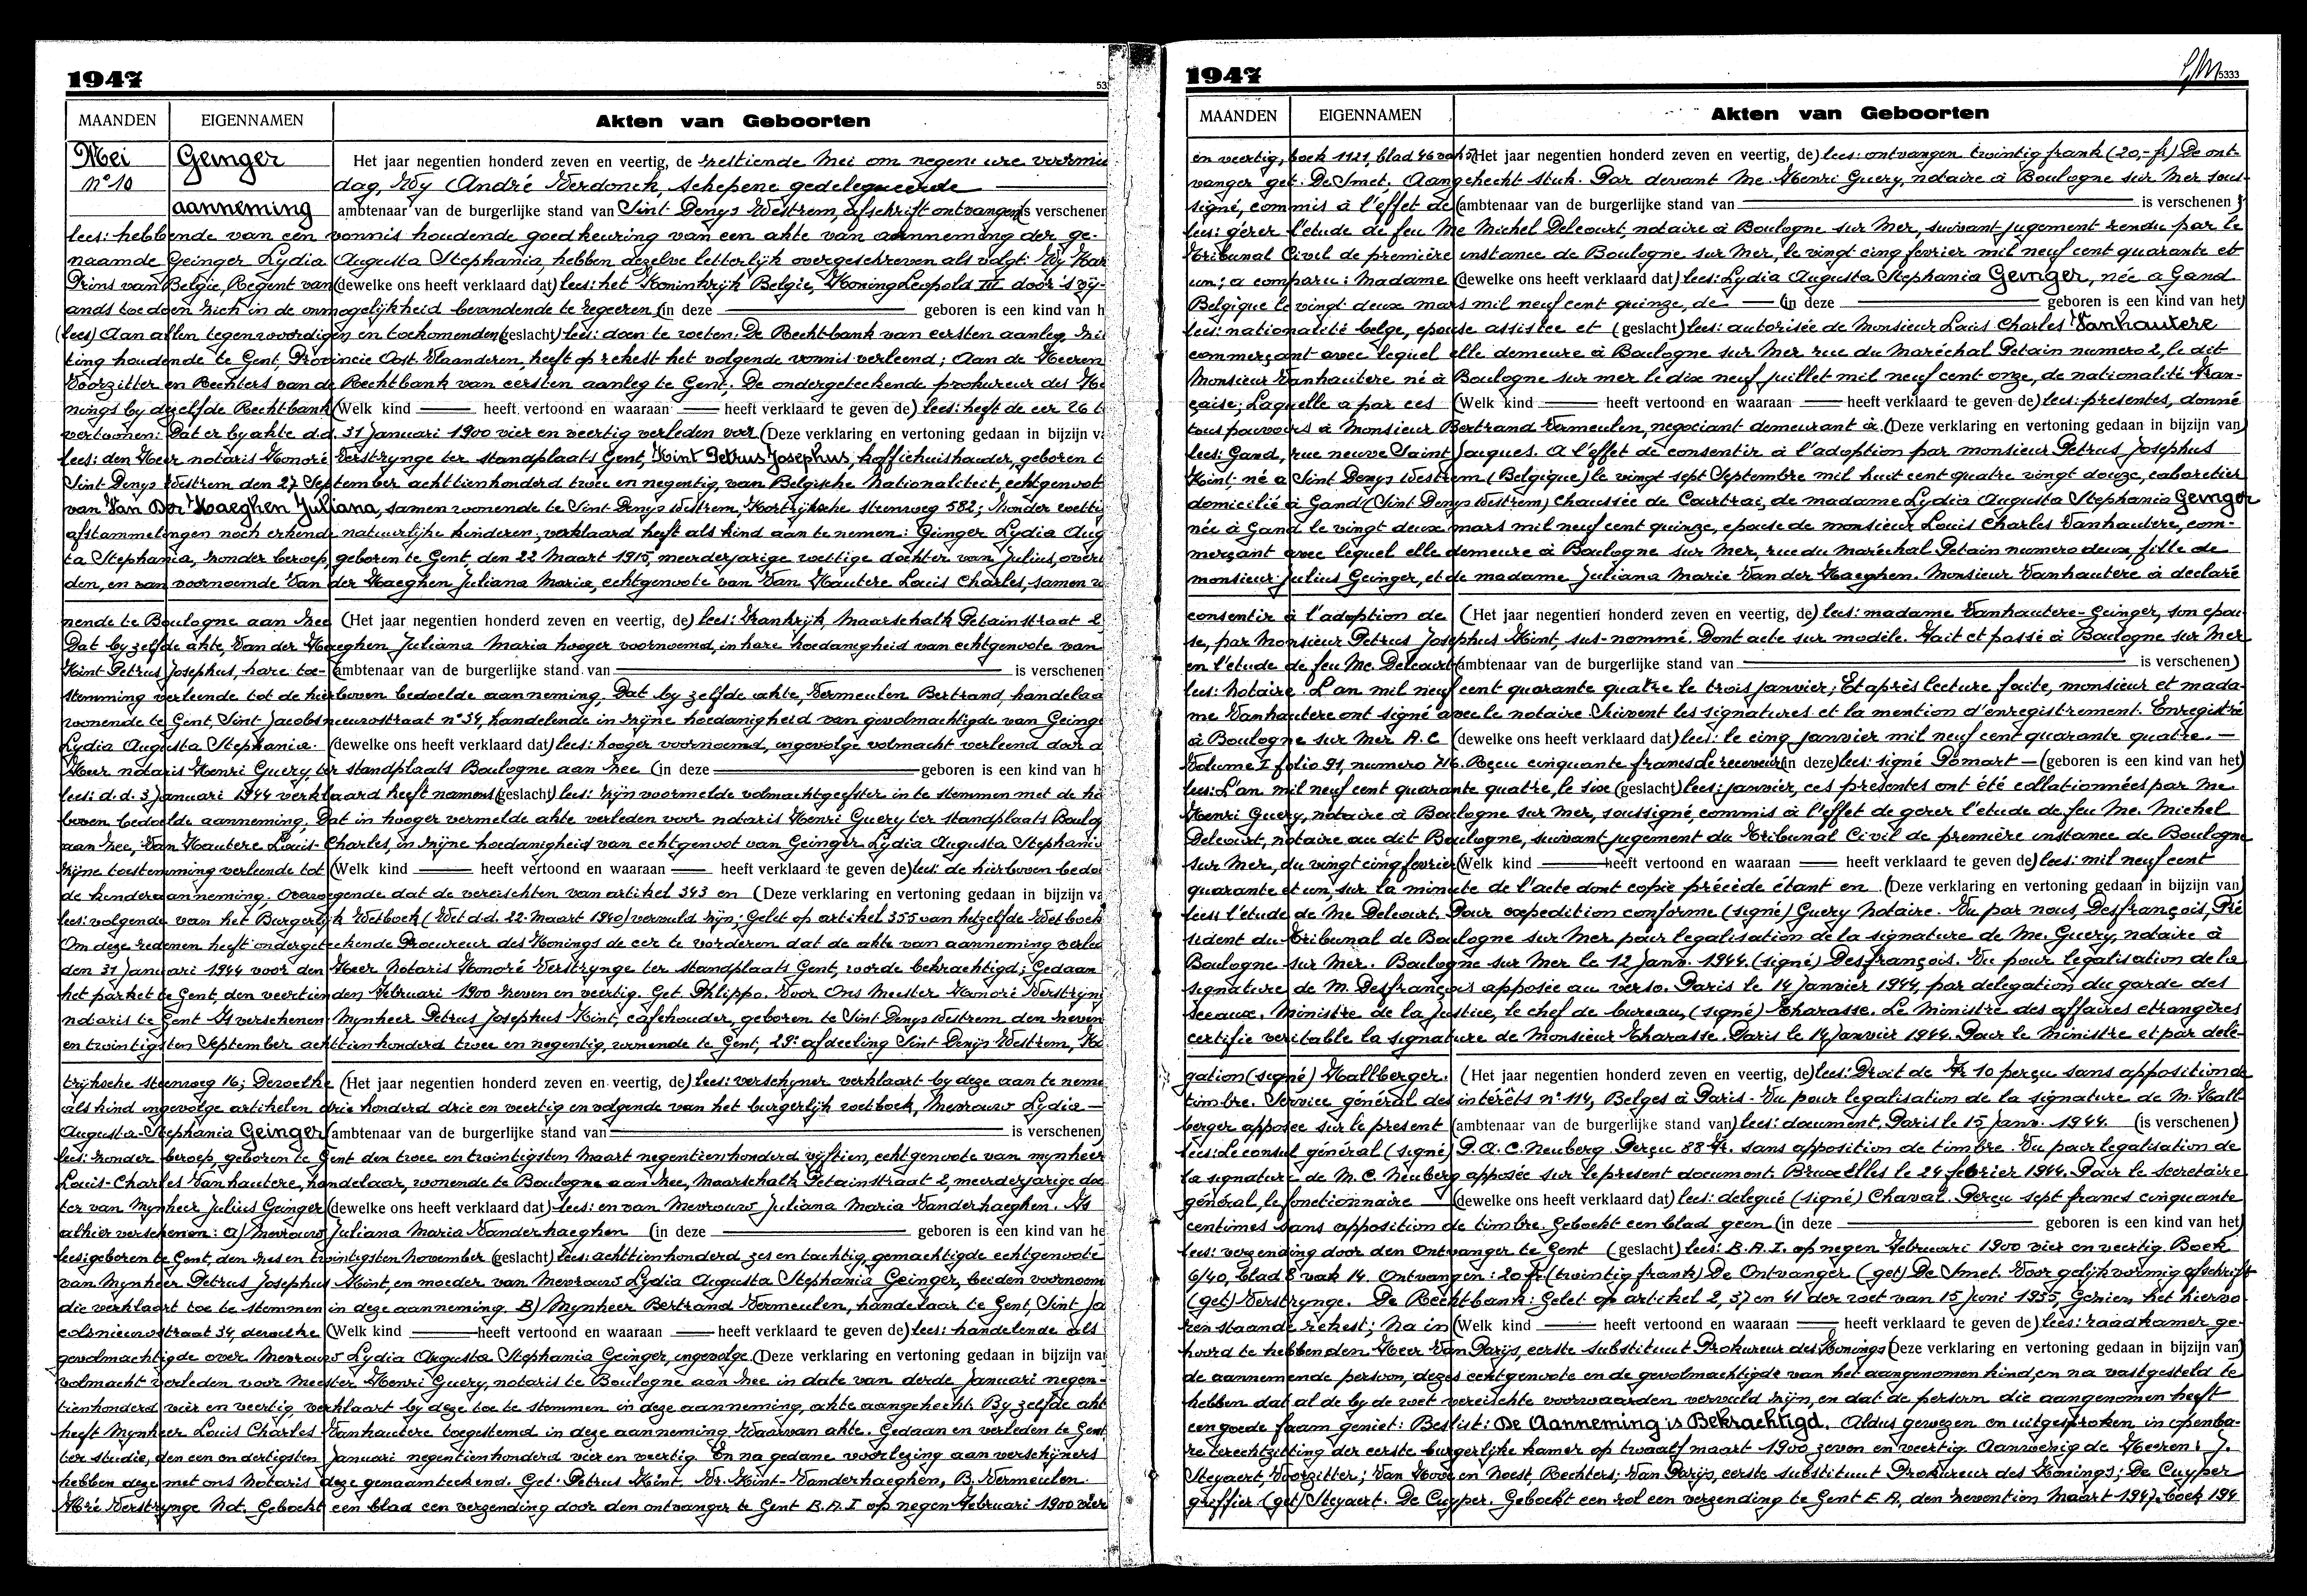 1947
53
MAANDEN
EIGENNAMEN
Akten van Geboorten
Mei
Geinger
Het jaar negentien honderd zeven en veertig, de zestiende Mei om negen ure voormid
nº 10
dag, Wy André Verdonck, schepene gedelegueerde
aanneming
ambtenaar van de burgerlijke stand van Sint Denys Westrem, afschrift ontvangen is verschenen
lees: hebbende van een vonnis houdende goedkeuring van een akte van aanneming der ge-
naamde Geinger Lydia Augusta Stephania, hebben dezelve letterlyk overgeschreven als volgt: Wy Kar
Prins van Belgie, Regent van (dewelke ons heeft verklaard dat) lees: het Koninkryk Belgie, Koning Leopold III door 's vy-
ands toedoen zich in de onmogelykheid bevindende te regeeren (in deze geboren is een kind van h
(lees) Aan allen tegenwoordigen en toekomenden (geslacht) lees: doen te weten: De Rechtbank van eersten aanleg zit
ting houdende te Gent, Provincie Oost Vlaanderen, heeft op rekest het volgende vonnis verleend; Aan de Heeren
Voorzitter en Rechters van de Rechtbank van eersten aanleg te Gent. De ondergeteekende prokureur des Ko
nings by dezelfde Rechtbank (Welk kind heeft vertoond en waaraan heeft verklaard te geven de) lees: heeft de eer 26 t
vertoonen: Dat er by akte d.d. 31 Januari 1900 vier en veertig verleden voor (Deze verklaring en vertoning gedaan in bijzijn va
lees: den Heer notaris Honoré Verstrynge ter standplaats Gent, Hint Petrus Josephus, koffiehuishouder, geboren t
Sint Denys Westrem den 27 September achttienhonderd twee en negentig, van Belgische Nationaliteit, echtgenoot
van Van Der Haeghen Juliana, samen wonende te Sint Denys Westrem, Kortrijksche steenweg 582; zonder wettig
afstammelingen noch erkende natuurlyke kinderen, verklaard heeft als kind aan te nemen: Geinger Lydia Aug
ta Stephania, zonder beroep, geboren te Gent, den 22 Maart 1915, meerderjarige wettige dochter van Julius, overl
den, en van voornoemde Van der Haeghen Juliana Maria, echtgenoote van Van Hautere Louis Charles, samen w
nende te Boulogne aan zee (Het jaar negentien honderd zeven en veertig, de) lees: Frankrijk, Maarschalk Petainstraat 2,
Dat by zelfde akte, Van der Haeghen Juliana Maria hooger voornoemd, in hare hoedanigheid van echtgenoote van
Hint Petrus Josephus, hare toe- (ambtenaar van de burgerlijke stand van is verschenen)
stemming verleende tot de hierboven bedoelde aanneming, Dat by zelfde akte, Vermeulen Bertrand, handelaa
wonende te Gent, Sint Jacobsnieuwstraat nº 34, handelende in zijne hoedanigheid van gevolmachtigde van Geinge
Lydia Augusta Stephania. (dewelke ons heeft verklaard dat) lees: hooger voornoemd, ingevolge volmacht verleend door d
Heer notaris Henri Guery, ter standplaats Boulogne aan zee (in deze geboren is een kind van h
lees: d.d. 3 Januari 1944 verklaard heeft namens (geslacht) lees: zijn voormelde volmachtgeefster in te stemmen met de hi
boven bedoelde aanneming, Dat in hooger vermelde akte verleden voor notaris Henri Guery ter standplaats Boulog
aan zee, Van Hautere Louis Charles, in zijne hoedanigheid van echtgenoot van Geinger Lydia Augusta Stephania
zijne toestemming verleende tot (Welk kind heeft vertoond en waaraan heeft verklaard te geven de) lees: de hierboven bedoe
de kinderaanneming. Overwegende dat de vereischten van artikel 343 en (Deze verklaring en vertoning gedaan in bijzijn va
lees: volgende van het Burgerlyk Wetboek (Wet d.d. 22 Maart 1940) vervuld zijn; Gelet op artikel 355 van hetzelfde Wetboek
Om deze redenen heeft ondergeteekende Procureur des Konings de eer te vorderen dat de akte van aanneming verled
den 31 Januari 1944 voor den Heer Notaris Honoré Verstrynge ter standplaats Gent, worde bekrachtigd; Gedaan
het parket te Gent, den veertienden Februari 1900 zeven en veertig. Get. Phlippo. Voor Ons Meester Honoré Verstryng
notaris te Gent Is verschenen Mynheer Petrus Josephus Hint, cafehouder, geboren te Sint Denys Westrem den zeven
en twintigsten September achttienhonderd twee en negentig, wonende te Gent, 29e afdeeling Sint Denijs Westrem, Ko
trijksche steenweg 16; Dewelke (Het jaar negentien honderd zeven en veertig, de) lees: verschyner verklaart by deze aan te neme
als kind ingevolge artikelen drie honderd drie en veertig en volgende van het burgerlyk wetboek, Mevrouw Lydia
Augusta-Stephania Geinger (ambtenaar van de burgerlijke stand van is verschenen)
lees: zonder beroep, geboren te Gent den twee en twintigsten Maart negentienhonderd vijftien, echtgenoote van mynheer
Louis-Charles Vanhautere, handelaar, wonende te Boulogne aan zee, Maarschalk Petainstraat 2, meerderjarige doc
ter van Mynheer Julius Geinger (dewelke ons heeft verklaard dat) lees: en van Mevrouw Juliana Maria Vanderhaeghen. Is
alhier verschenen: a) Mevrouw Juliana Maria Vanderhaeghen (in deze geboren is een kind van he
lees: geboren te Gent, den zes en twintigsten November (geslacht) lees: achttienhonderd zes en tachtig, gemachtigde echtgenoote
van Mynheer Petrus Josephus Hint, en moeder van Mevrouw Lydia Augusta Stephania Geinger, beiden voornoem
die verklaart toe te stemmen in deze aanneming. B) Mynheer Bertrand Vermeulen, handelaar te Gent, Sint Ja
cobsnieuwstraat 34, dewelke (Welk kind heeft vertoond en waaraan heeft verklaard te geven de) lees: handelende als
gevolmachtigde over Mevrouw Lydia Augusta Stephania Geinger, ingevolge (Deze verklaring en vertoning gedaan in bijzijn van
volmacht verleden voor Meester Henri Guery, notaris te Boulogne aan zee in date van derde Januari negen-
tienhonderd vier en veertig, verklaart by deze toe te stemmen in deze aanneming, akte aangehecht. By zelfde akt
heeft Mynheer Louis Charles Vanhautere toegestemd in deze aanneming. Waarvan akte. Gedaan en verleden te Gent
ter studie, den een en dertigsten Januari negentienhonderd vier en veertig. En na gedane voorlezing aan verschijners
hebben deze met ons Notaris deze genaamteekend. Get. Petrus Hint. Vr. Hint-Vanderhaeghen, B. Vermeulen.
Hré Verstrynge Not. Geboekt een blad een verzending door den ontvanger te Gent B.A.I op negen Februari 1900 vier
1947
5333
MAANDEN
EIGENNAMEN
Akten van Geboorten
en veertig, boek 1121, blad 46 vak 5 (Het jaar negentien honderd zeven en veertig, de) lees: ontvangen twintig frank (20,- fr) De ont-
vanger get. De Smet. Aangehecht stuk. Par devant Me. Henri Guery, notaire à Boulogne sur Mer sous-
signé, commis à l'effet de (ambtenaar van de burgerlijke stand van is verschenen)
lees: gérer l'etude de feu Me Michel Delcourt, notaire à Boulogne sur Mer, suivant jugement rendu par le
Tribunal Civil de première instance de Boulogne sur Mer, le vingt cinq fevrier mil neuf cent quarante et
un; a comparu: Madame (dewelke ons heeft verklaard dat) lees: Lydia Augusta Stephania Geinger, née a Gand
Belgique le vingt deux mars mil neuf cent quinze, de (in deze geboren is een kind van het)
lees: nationalité belge, epouse assistée et (geslacht) lees: autorisée de Monsieur Louis Charles Vanhautere
commerçant avec lequel elle demeure à Boulogne sur Mer rue du Maréchal Petain numero 2, le dit
Monsieur Vanhautere né à Boulogne sur mer le dix neuf juillet mil neuf cent onze, de nationalité fran-
çaise; Laquelle a par ces (Welk kind heeft vertoond en waaraan heeft verklaard te geven de) lees: presentes, donné
tous pouvoirs à Monsieur Bertrand Vermeulen, negociant demeurant à (Deze verklaring en vertoning gedaan in bijzijn van)
lees: Gand, rue neuve Saint Jacques. A l'effet de consentir à l'adoption par monsieur Petrus Josephus
Hint, né à Sint Denys Westrem (Belgique) le vingt sept Septembre mil huit cent quatre vingt douze, cabaretier
domicilié à Gand (Sint Denys Westrem) Chaussée de Courtrai, de madame Lydia Augusta Stephania Geinger
née à Gand le vingt deux mars mil neuf cent quinze, epouse de monsieur Louis Charles Vanhautere, com-
merçant avec lequel elle demeure à Boulogne sur Mer, rue du Maréchal Petain numero deux, fille de
monsieur Julius Geinger, et de madame Juliana Marie Van der Haeghen. Monsieur Vanhautere à declaré
consentir à l'adoption de (Het jaar negentien honderd zeven en veertig, de) lees: madame Vanhautere-Geinger, son epou-
se, par Monsieur Petrus Josephus Hint, sus-nommé. Dont acte sur modèle. Fait et passé à Boulogne sur Mer
en l'etude de feu Me. Delcourt (ambtenaar van de burgerlijke stand van is verschenen)
lees: Notaire. L'an mil neuf cent quarante quatre le trois janvier; Et après lecture faite, monsieur et mada-
me Vanhautere ont signé avec le notaire Suivent les signatures et la mention d'enregistrement. Enregistré
à Boulogne sur Mer A.C (dewelke ons heeft verklaard dat) lees: le cinq janvier mil neuf cent quarante quatre.
Volume I folio 91, numero 716. Reçu cinquante francs de receveur (in deze) lees: signé Pomart (geboren is een kind van het)
lees: L'an mil neuf cent quarante quatre, le six (geslacht) lees: janvier, ces presentes ont été collationnées par Me.
Henri Guery, notaire à Boulogne sur Mer, soussigné, commis à l'effet de gerer l'etude de feu Me. Michel
Delcourt, notaire au dit Boulogne, suivant jugement du Tribunal Civil de première instance de Boulogne
sur Mer, du vingt cinq fevrier (Welk kind heeft vertoond en waaraan heeft verklaard te geven de) lees: mil neuf cent
quarante et un, sur la minute de l'acte dont copie précède étant en (Deze verklaring en vertoning gedaan in bijzijn van)
lees: l'etude de Me Delcourt. Pour expedition conforme (signé) Guery Notaire. Vu par nous, Desfrançois, Pré
sident du Tribunal de Boulogne sur Mer pour legalisation de la signature de Me. Guery, notaire à
Boulogne sur Mer. Boulogne sur Mer le 12 Janv. 1944. (signé) Desfrançois. Vu pour legalisation de la
signature de M. Desfrançois apposée au verso. Paris le 14 Janvier 1944, par delegation du garde des
Sceaux. Ministre de la Justice, le chef de bureau, (signé) Charasse. Le Ministre des affaires etrangères
certifie veritable la signature de Monsieur Charasse. Paris le 14 Janvier 1944. Pour le Ministre et par delé-
gation (signé) Hallberger. (Het jaar negentien honderd zeven en veertig, de) lees: Droit de Fr 10 perçu sans apposition de
timbre. Service général des intérêts nº 114, Belges à Paris - Vu pour legalisation de la signature de M. Hall-
berger apposée sur le present (ambtenaar van de burgerlijke stand van) lees: document. Paris le 15 Janv. 1944. (is verschenen)
lees: Le consul général (signé) P.A.C. Neuberg Perçu 88 Fr. sans apposition de timbre. Vu pour legalisation de
la signature de M. C. Neuberg apposée sur le present document. Bruxelles le 24 février 1944. Pour le secretaire
général, le fonctionnaire (dewelke ons heeft verklaard dat) lees: delegué (signé) Chaval. Perçu sept francs cinquante
centimes sans apposition de timbre. Geboekt een blad geen (in deze geboren is een kind van het)
lees: verzending door den Ontvanger te Gent (geslacht) lees: B.A.I. op negen Februari 1900 vier en veertig. Boek
6/40, blad 8 vak 14. Ontvangen: 20 fr. (twintig frank) De Ontvanger (get) De Smet. Voor gelijkvormig afschrift
(get) Verstrynge. De Rechtbank: Gelet op artikel 2, 37 en 41 der wet van 15 Juni 1935, Gezien het hiervo
ren staande rekest; Na in (Welk kind heeft vertoond en waaraan heeft verklaard te geven de) lees: raadkamer ge-
hoord te hebben den Heer Van Parijs, eerste substituut Prokureur des Konings (Deze verklaring en vertoning gedaan in bijzijn van)
de aannemende persoon, dezes echtgenoote en de gevolmachtigde van het aangenomen kind, en na vastgesteld te
hebben dat al de by de wet vereischte voorwaarden vervuld zijn, en dat de persoon die aangenomen heeft
een goede faam geniet: Beslist: De Aanneming is Bekrachtigd. Aldus gewezen en uitgesproken in openba-
re terechtzitting der eerste burgerlyke kamer op twaalf maart 1900 zeven en veertig. Aanwezig de Heeren: J.
Steyaert, Voorzitter; Van Hove en Noest, Rechters; Van Parijs, eerste substituut Prokureur des Konings; De Cuyper
greffier (get) Steyaert. De Cuyper. Geboekt een rol een verzending te Gent E.A, den zeventien Maart 1947, boek 194